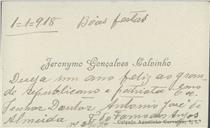 1=1=918 Boas festas
Jeronymo Gonçalves Caloinho
Deseja um ano feliz ao gran-
de republicano e patriota Ex.
Senhor Doutor Antonio José de
Almeida
Calçada Agostinho Carvalho,